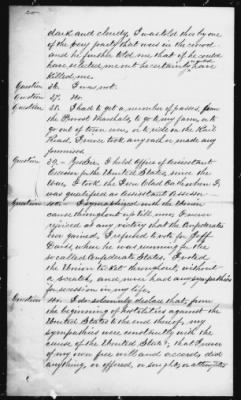 dark and cloudy. I was told this by one
of the very party that was in the crowd
and he further told me that if he could
have selected me out he certainly would have
killed me.
Question 26. I was not.
Question 27. No
Question 28. I had to get a number of passes from
the Provost Marshals, to go to my farm, or to
go out of town ever, or to ride on the Rail
Road. I never took any oath or made any
promises
Question 39 - Yes Sir. I held Office of Assistant
Assessor for the United States since the
War, I took the Iron Clad Oath when I
was qualified as Assistant Assessor.
Question 40. - I sympathized with the Union
cause throughout up till now, I never
rejoiced at any victory that the Confederates
ever gained. I refused to vote for Jeff
Davis, when he was running for the
so called Confederate States. I voted
the Union ticket throughout, without
a scratch, and never have any sympathies
for secession in my life.
Question I do solemnly declare that, from
the beginning of hostilities against the
United States to the end thereof, my
sympathies were constantly with the
cause of the United States; that I never
of my own free will and accord, did
anything, or offered, or sought, or attempted